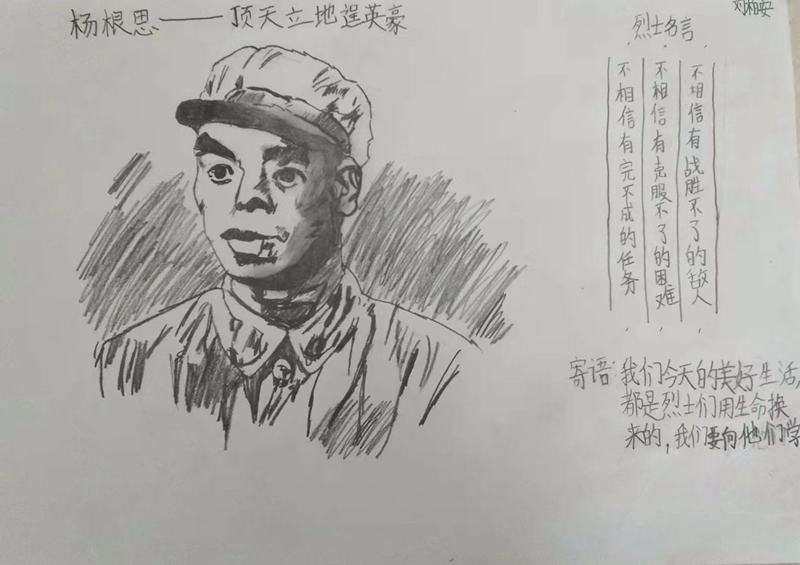 杨根思——顶天立地逞英豪
烈士名言
不相信有完不成的任务
不相信有克服不了的困难
不相信有战胜不了的敌人
寄语:我们今天的美好生活,
都是烈士们用生命换
来的,我们要向他们学